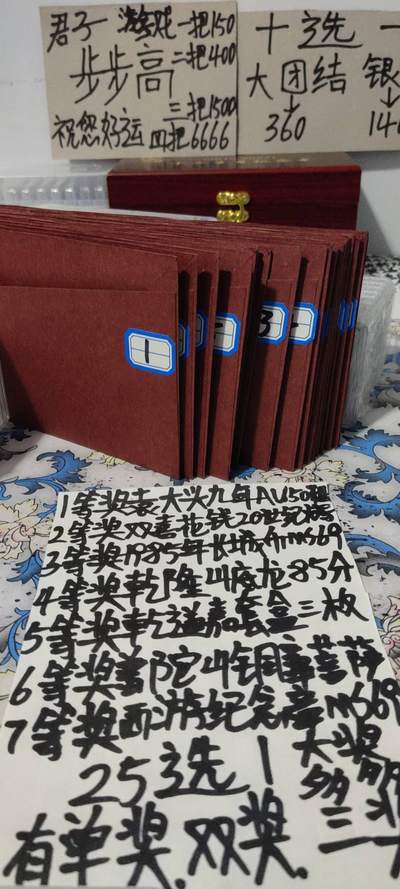 君子一游戏一把150
步步高二把400
三把1500
祝您好运四把6666
十选一
大团结 银
360 14
1
3
1等奖袁大头九年AU50
2等奖双喜花钱20世纪
3等奖1985年长城币MS69
4等奖乾隆山底龙85分
5等奖乾道嘉套盒三枚
6等奖普陀山铜章菩萨
7等奖西游纪念章MS69
25选1
大奖
有单奖.双奖.三